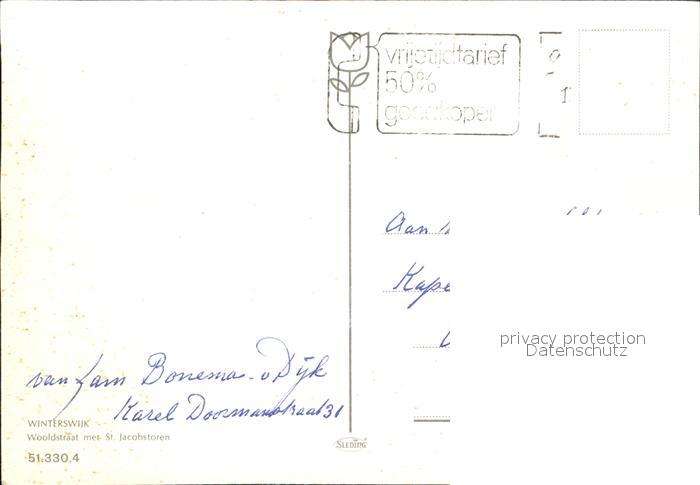 vrijetijdtarief
50%
goedkoper
1
Aan
Kape
privacy protection
Datenschutz
van fam Bonema - v Dijk
Karel Doormanstraat 31
WINTERSWIJK
Wooldstraat met St. Jacobstoren
51.330.4
SLEDING